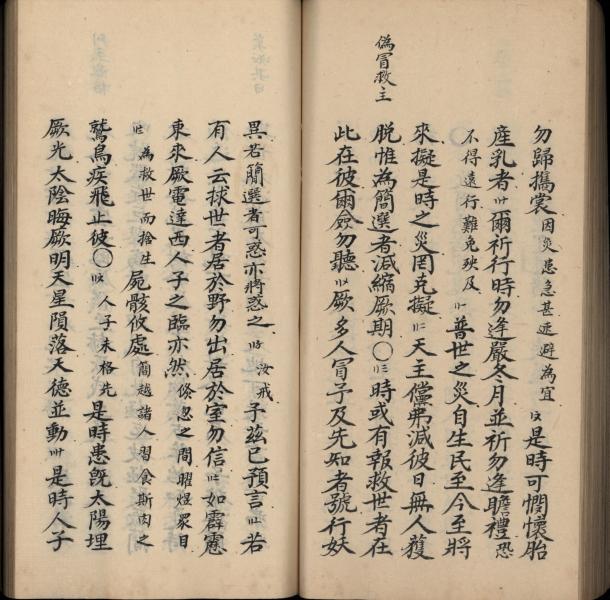 偽冒救主
勿歸攜裳因災患急甚速避為宜 是時可憫懷胎
產乳者 爾祈行時勿逢嚴冬月並祈勿逢瞻禮恐
不得遠行難免殃及 普世之災自生民至今至將
來擬是時之災罔克擬 天主儻弗減彼日無人獲
脫惟為簡選者減縮厥期〇 時或有報救世者在
此在彼爾僉勿聽 厥多人冒子及先知者號行妖
異若簡選者可惑亦將惑之 汝戒子茲已預言 若
有人云救世者居於野勿出居於室勿信 如霹靂
東來厥電達西人子之臨亦然倏忽之間曜煜眾目
為救世而捨生屍骸攸處簡越諸人習食斯肉之
鷲鳥疾飛止彼〇 人子未格先是時患既太陽埋
厥光太陰晦厥明天星隕落天德並動 是時人子